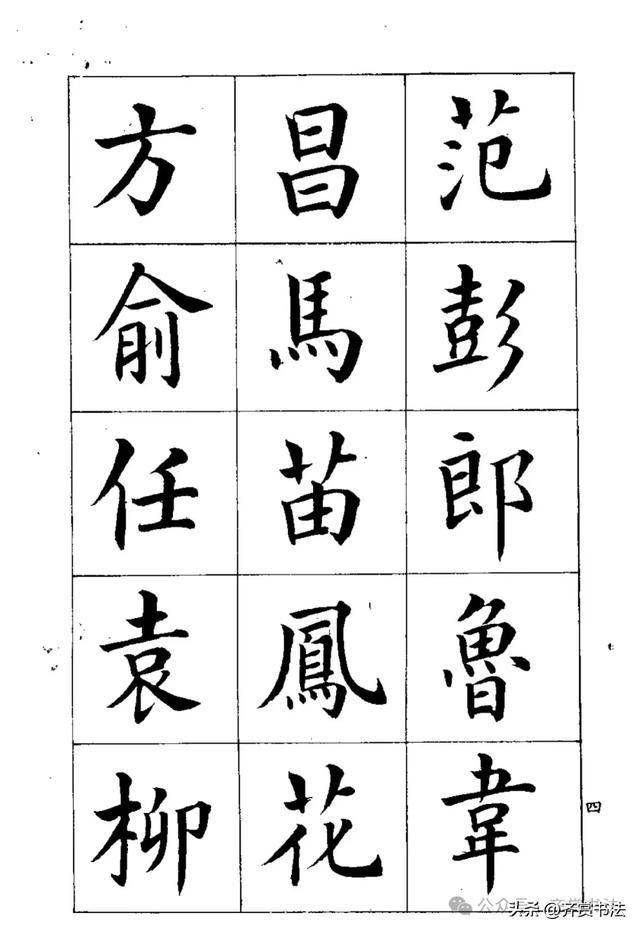 范彭郎魯韋
昌馬苗鳳花
方俞任袁柳
四
头条 @齐赏书法